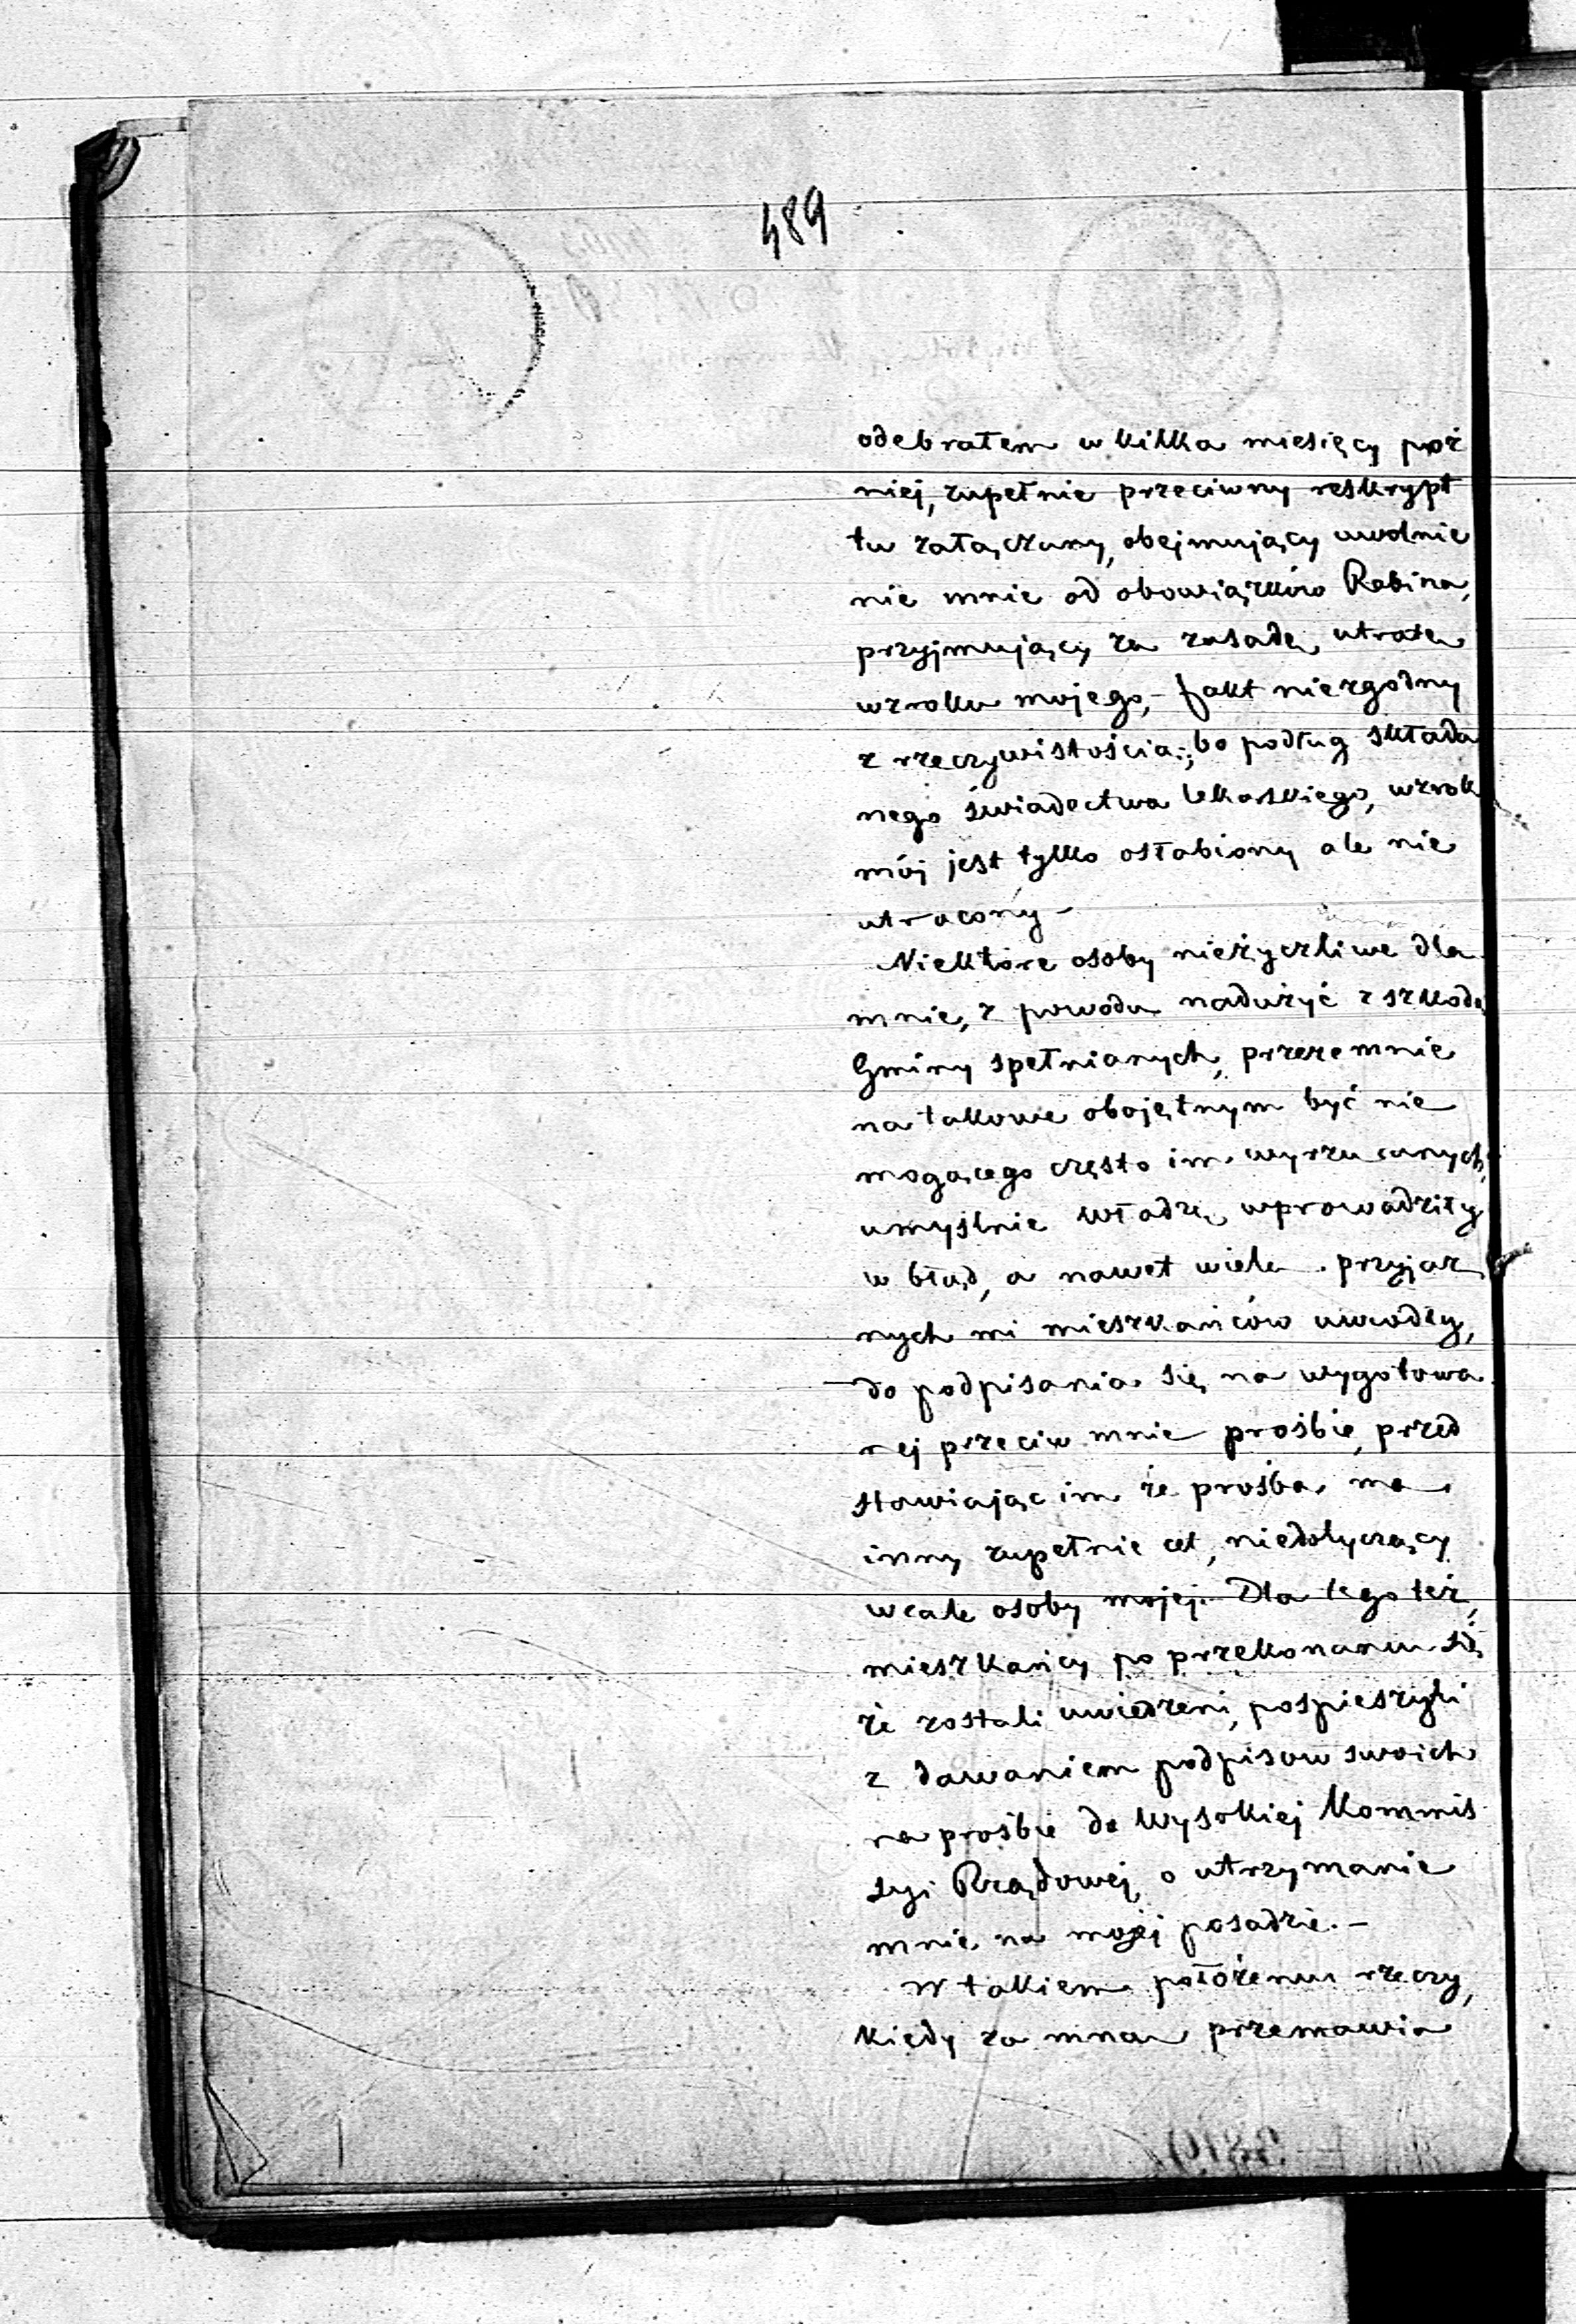 489
odebrałem w kilka miesięcy póź
niej, zupełnie przeciwny reskrypt
tu załączony, obejmujący uwolnie
nie mnie od obowiązków Rabina,
przyjmujący za zasadę, utratę
wzroku mojego, – fakt niezgodny
z rzeczywistością; bo podług składa
nego świadectwa lekarskiego, wzrok
mój jest tylko osłabiony ale nie
utracony –
Niektóre osoby nieżyczliwe dla
mnie, z powodu nadużyć z szkodą
Gminy spełnianych, przezemnie
na takowe obojętnym być nie
mogącego często im wyrzucanych,
umyślnie władzę wprowadziły
w błąd, a nawet wiele przyjaz
nych mi mieszkańców uwiodły,
do podpisania się na wygotowa
nej przeciw mnie prośbie, przed
stawiając im że prośba ma
inny zupełnie cel, niedotyczący
wcale osoby mojej. Dla tego też,
mieszkańcy po przekonaniu się,
że zostali uwiedzeni, pospieszyli
z dawaniem podpisów swoich
na prośbie do Wysokiej Kommis
syi Rządowej, o utrzymanie
mnie na mojej posadzie. –
W takiem położeniu rzeczy,
kiedy za mną przemawia